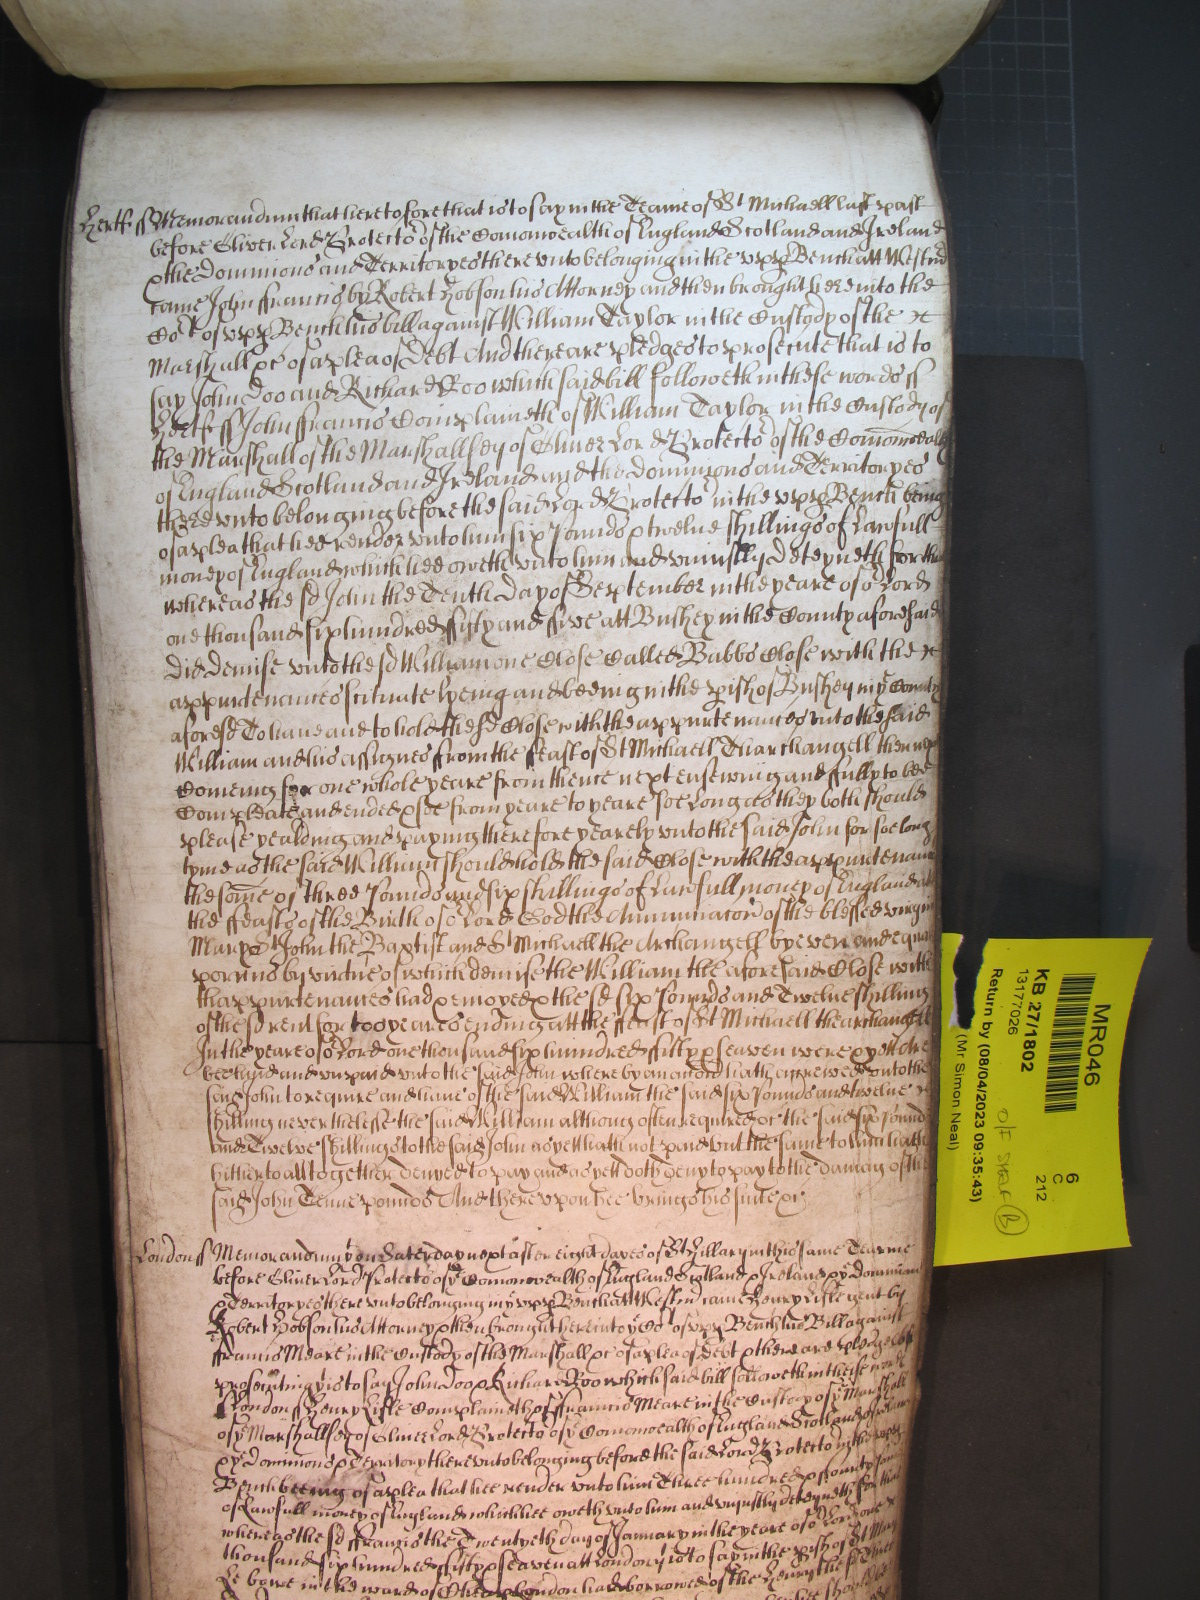 Hertf ss Memorandum that heretofore that is to say in the Tearme of St Michaell last past
before Oliver Lord Protector of the Comonwealth of England Scotland and Ireland
& the Dominions and Territoryes thereunto belonging in the upp Bench att Westmr
came John ffrancis by Robert Hobson his Attorney and then brought here into the
Cort of upp Bench his bill against William Taylor in the Custody of the
Marshall &c of a plea of Debt And there are pledges to prosecute that is to
say John Doo and Richard Roo which said bill followeth in these words ss
Hertf ss John ffrancis Complaineth of William Taylor in the Custody of
the Marshall of the Marshallsey of Oliver Lord Protector of the Comonwealth
of England Scotland and Ireland and the Dominions and Territoryes
thereunto belonging before the said Lord Protector in the upp Bench being
of a plea that hee render unto him six Pounds & twelve shillings of Lawfull
money of England which hee oweth unto him and uniustly deteyneth for that
whereas the sd John the Tenth day of September in the yeare of or Lord
one thousand six hundred fifty and five att Bushey in the County aforesaid
did demise unto the sd William one Close Called Babbs Close with the
appurtenances scituate lyeing and beeing in the pish of Bushey in ye County
aforesd To have and to hold the sd Close with the appurtenances unto the said
William and his assignes from the feast of St Michaell Tharchangell then next
Comeing for one whole yeare from thence next ensewing and fully to bee
Compleate and ended & soe from yeare to yeare soe Long as they both should
please yealding and paying therefore yearely unto the said John for soe long
tyme as the said William should hold the said Close with the appurtenances
the some of three Pounds and six shillings of Lawfull money of England att
the ffeasts of the Birth of or Lord God the Annunciacon of the blessed virgin
Mary St John the Baptist and St Michaell the Archangell by even and equall
porcons by virtue of which demise the William the aforesaid Close with
thappurtenances had & enioyed & the sd six Pounds and Twelve shillings
of the sd rent for too yeares ending att the ffeast of St Michaell the archangell
In the yeare of or Lord one thousand six hundred fifty & seaven were &
behind and unpaid unto the said John whereby an accon hath accrewed unto the
said John to require and have of the said William the said six Pounds and twelve
shillings neverthelesse the said William although often required &c the said six Pounds
and Twelve shillings to the said John as yett hath not paid but the same to him hath
hitherto alltogether denyed to pay and as yett doth deny to pay to the damag of the
said John Tenne pounds And thereupon hee brings his suite &c
London ss Memorandum yt on Saterday next after eight dayes of St Hillary in this same Tearme
before Oliver Lord Protector of ye Comonwealth of England Scotland & Ireland & ye Dominions
& Territoryes thereunto belonging in ye upp Bench att Westmr came Henry Lisle gent by
Robert Hobson his Attorney & then brought here into ye Cort of upp Bench his Bill against
ffrancis Meare in the Custody of the Marshall &c of a plea of Debt & there are pledges of
prosecuting yt is to say John Doo & Richard Roo which said bill followeth in theise words
London ss Henry Lisle Complaineth of ffrancis Meare in the Custody of ye Marshall
of ye Marshallsey of Oliver Lord Protector of ye Comonwealth of England Scotland & Ireland
& ye Dominions & Territory thereunto belonging before the said Lord Protector in the upp
Bench beeing of a plea that hee render unto him Three hundred & fourty Pounds
of Lawfull money of England which hee oweth unto him and uniustly deteyneth for that
whereas the sd ffrancis the Twentyeth day of January in the yeare of or Lord one
thousand six hundred fifty & seaven att London yt is to say in the pish of St Mary
Le bowe in the ward of Cheape London had borrowed of the Henry the sd Three
MR046
KB 27/1802
13177026
Return by (08/04/2023 09:35:43)
(Mr Simon Neal)
6
C
212
O/F SHELF B